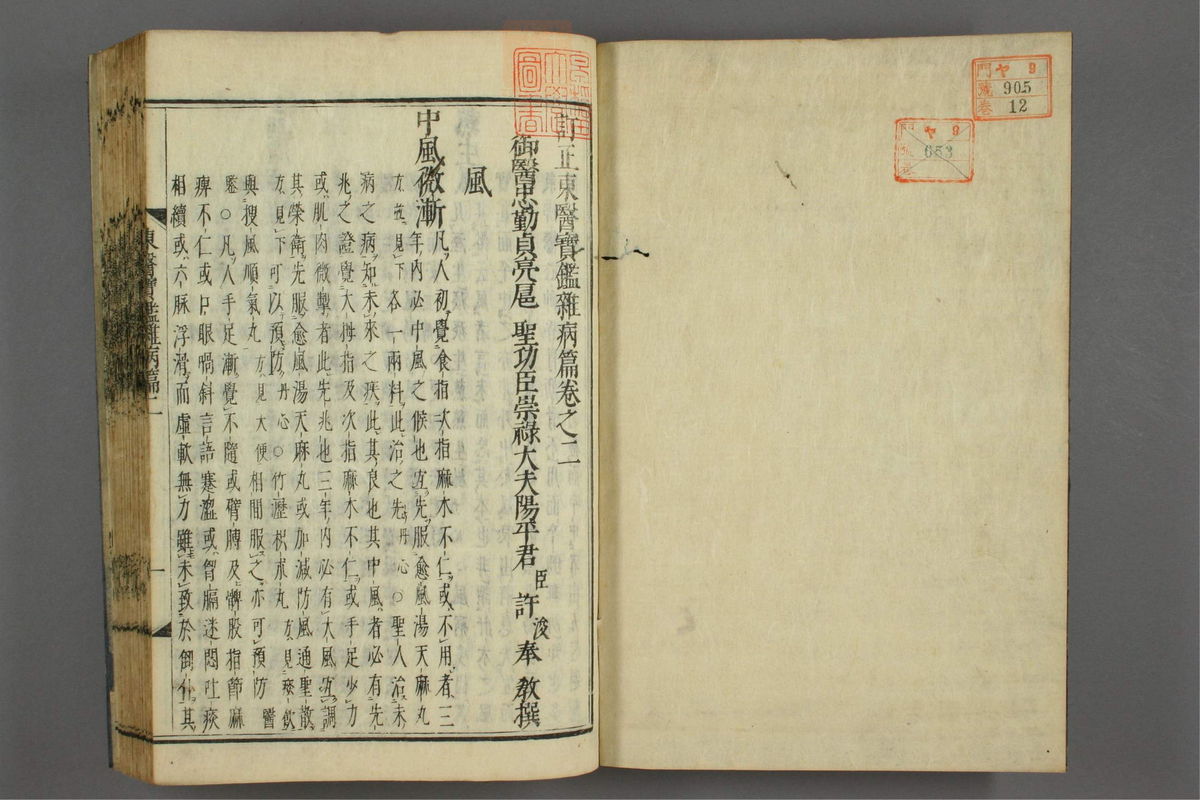 門 ヤ 9
號 905
卷 12
門 ヤ 9
653
訂正東醫寶鑑雜病篇卷之二
御醫忠勤貞亮扈聖功臣崇祿大夫陽平君臣許浚奉教撰
風
中風微漸
凡人初覺食指次指麻木不仁或不用者三
年內必中風之候也宜先服愈風湯天麻丸
方並見下各一兩料此治之先丹心○聖人治未
病之病知未來之疾此其良也其中風者必有先
兆之證覺大拇指及次指麻木不仁或手足少力
或肌肉微掣者此先兆也三年內必有大風宜調
其榮衛先服愈風湯天麻丸或加減防風通聖散
方見下可以預防丹心○竹瀝枳朮丸方見痰飲
與搜風順氣丸方見大便相間服之亦可預防醫
鑒○凡人手足漸覺不隨或臂膊及髀股指節麻
痺不仁或口眼喎斜言語蹇澁或胷膈迷悶吐痰
相續或六脉浮滑而虛軟無力雖未致於倒仆其
東醫寶鑑雜病篇二
一